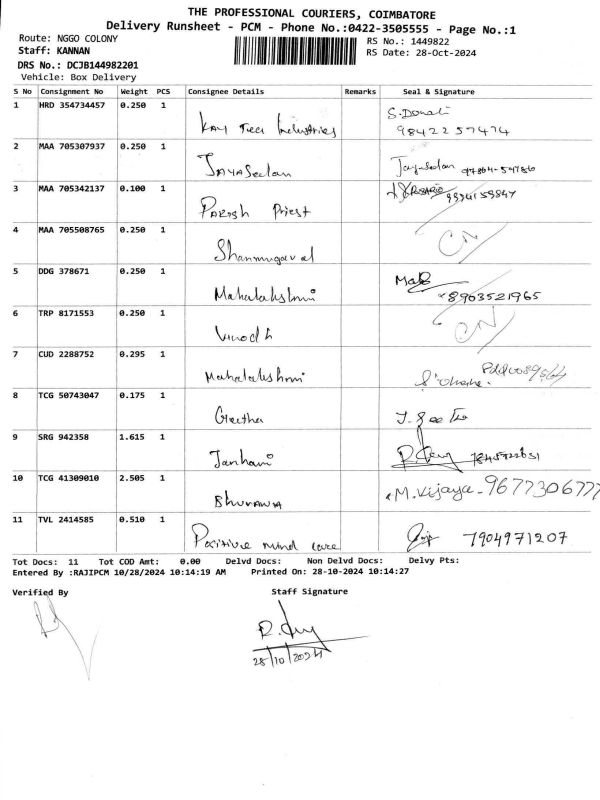 THE PROFESSIONAL COURIERS, COIMBATORE
Delivery Runsheet - PCM - Phone No.:0422-3505555 - Page No.:1
Route: NGGO COLONY
RS No.: 1449822
Staff: KANNAN
RS Date: 28-Oct-2024
DRS No.: DCJB144982201
Vehicle: Box Delivery
S No Consignment No Weight PCS Consignee Details Remarks Seal & Signature
1 HRD 354734457 0.250 1 Kay Tech Industries S.Donali 9842257474
2 MAA 705307937 0.250 1 Jayaseelan Jayaseelan
3 MAA 705342137 0.100 1 Parish Priest 9994159847
4 MAA 705508765 0.250 1 Shanmugavel CN
5 DDG 378671 0.250 1 Mahalakshmi 8903521965
6 TRP 8171553 0.250 1 Vinodh CN
7 CUD 2288752 0.295 1 Mahalakshmi
8 TCG 50743047 0.175 1 Geetha
9 SRG 942358 1.615 1 Janhavi
10 TCG 41309010 2.505 1 Bhuvana M.Vijaya - 9677306777
11 TVL 2414585 0.510 1 Positive mind care 7904971207
Tot Docs: 11 Tot COD Amt: 0.00 Delvd Docs: Non Delvd Docs: Delvy Pts:
Entered By :RAJIPCM 10/28/2024 10:14:19 AM Printed On: 28-10-2024 10:14:27
Verified By Staff Signature
28/10/2024